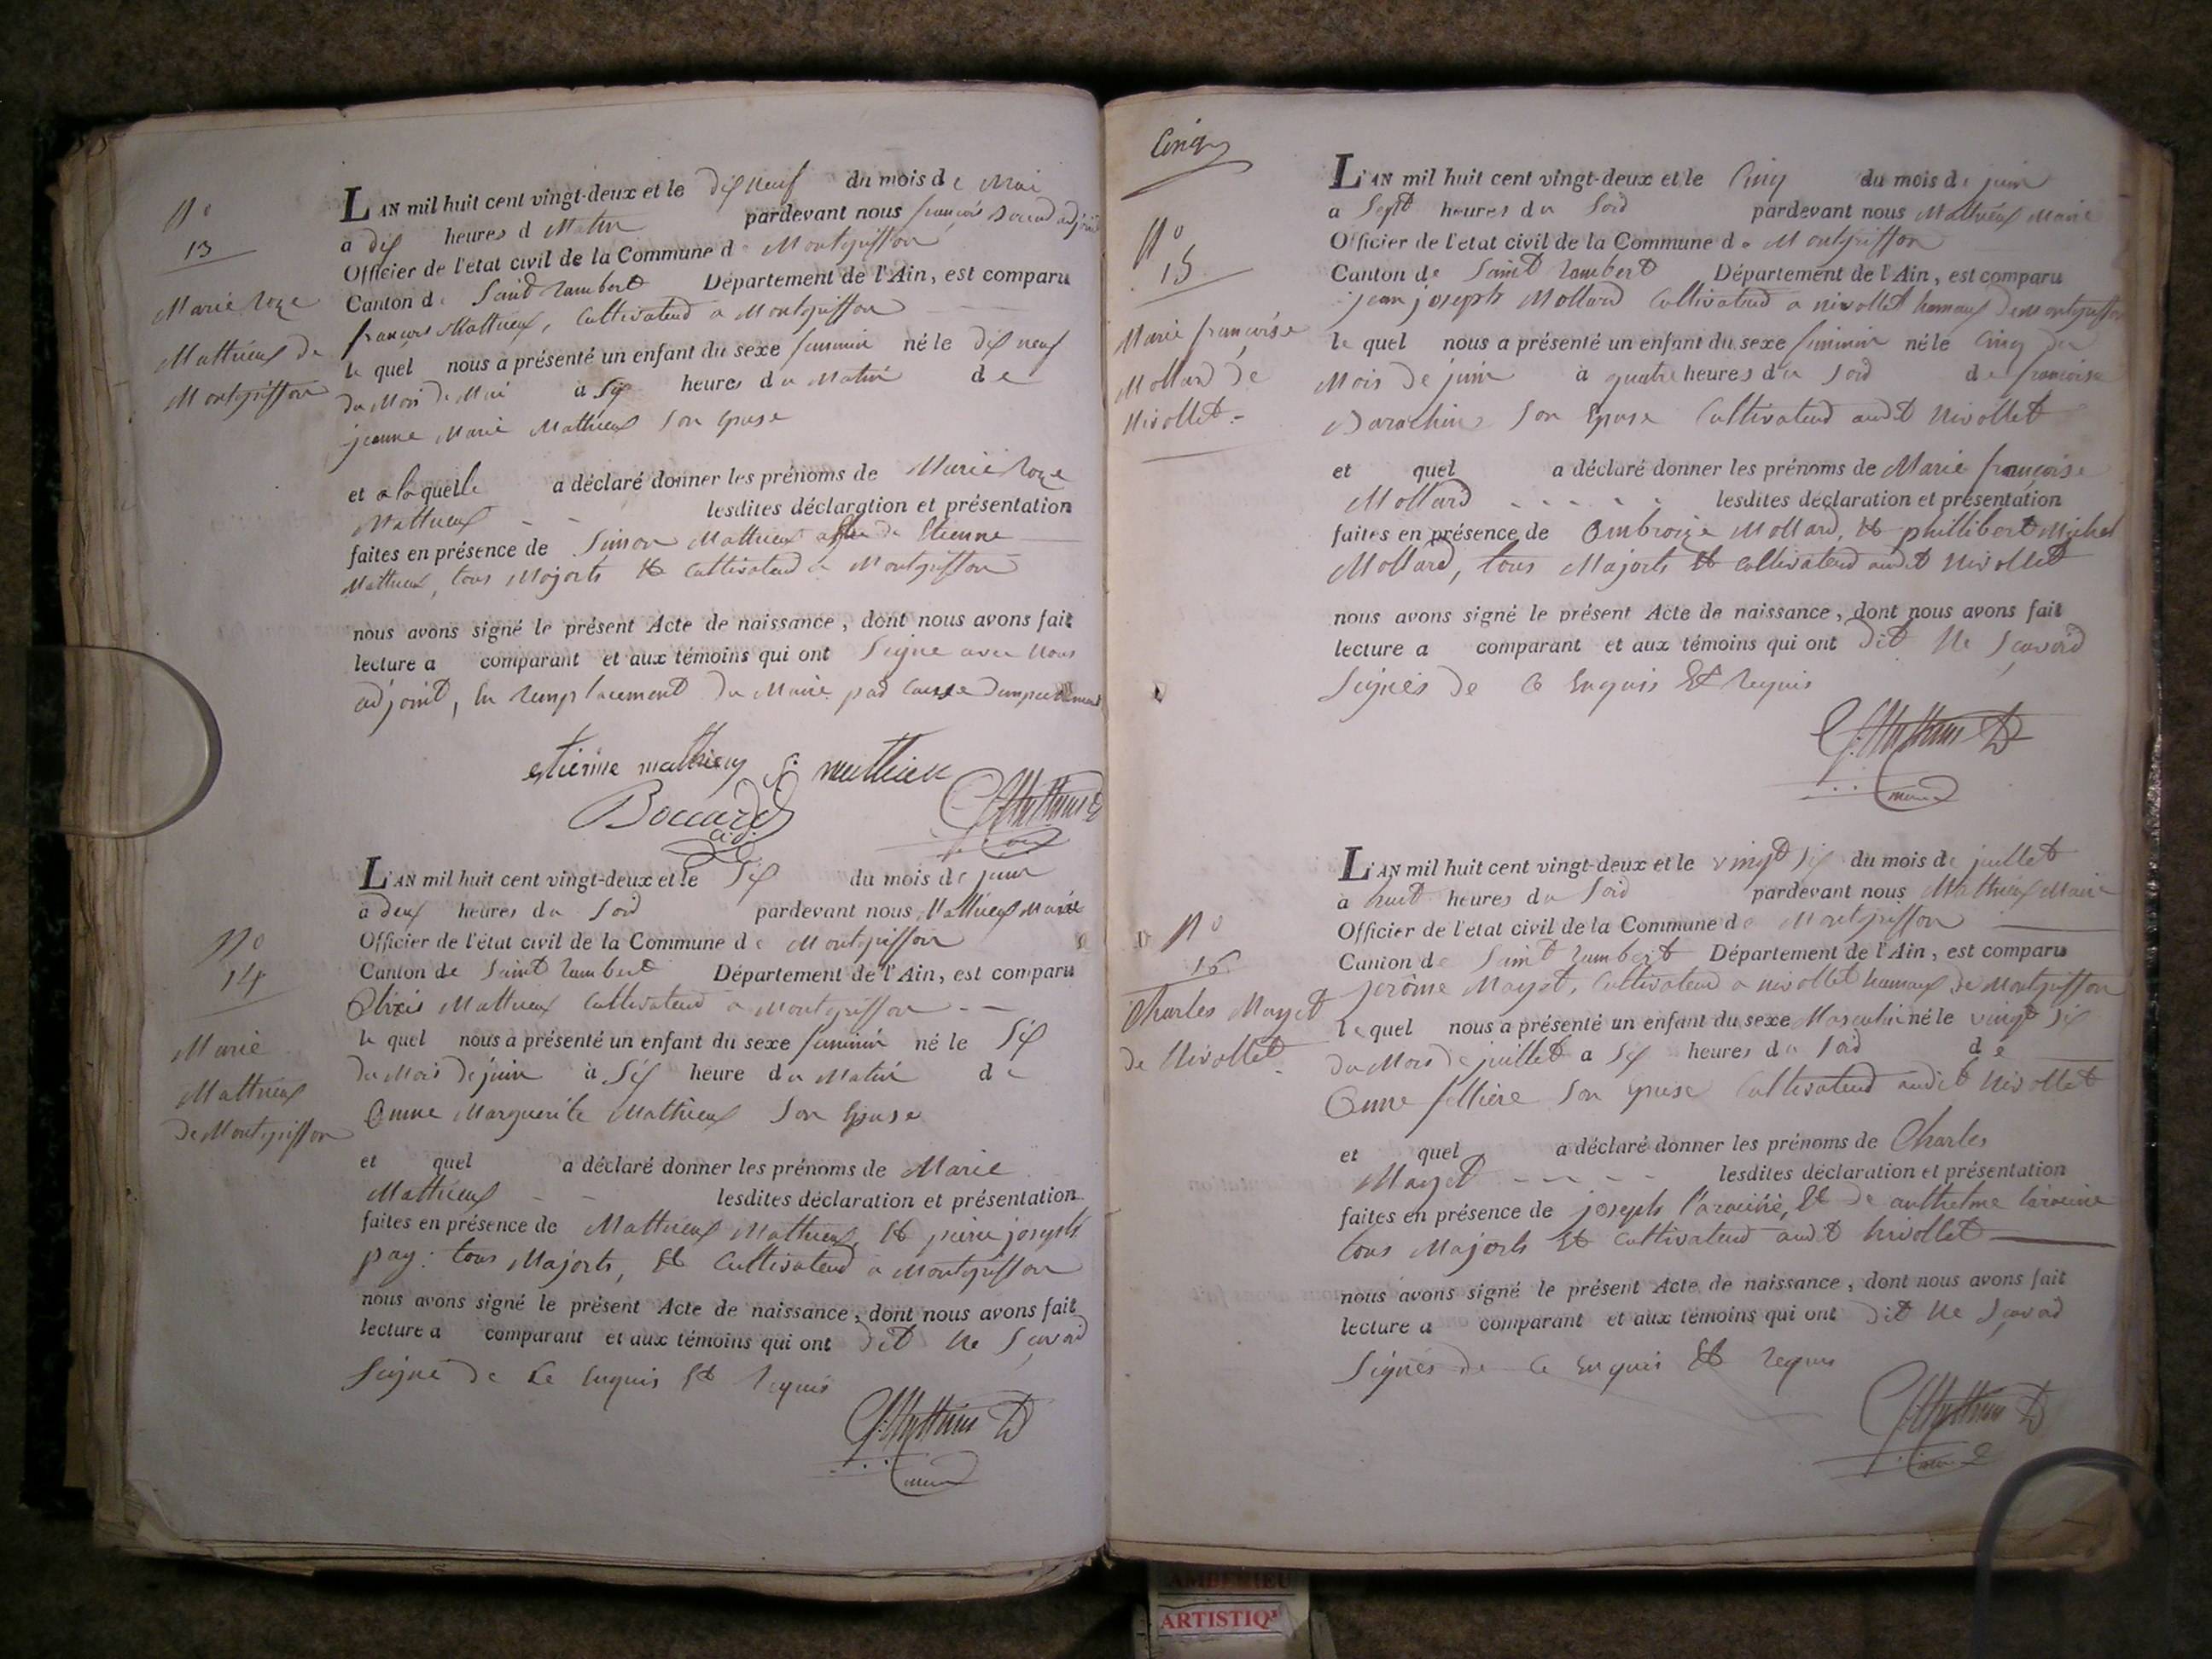 N°
13
Marie Roze
Mathieux de
Montgriffon
L'AN mil huit cent vingt-deux et le dix neuf du mois de Mai
a dix heures d Matin pardevant nous françois Boccard adjoint
Officier de l'état civil de la Commune de Montgriffon
Canton de Saint Rambert Département de l'Ain, est comparu
françois Mathieux, Cultivateur a Montgriffon
le quel nous a présenté un enfant du sexe feminin né le dix neuf
du Mois de Mai à Six heures du Matin de
jeanne Marie Mathieux Son Epouse
et a laquelle a déclaré donner les prénoms de Marie Roze
Mathieux lesdites déclaration et présentation
faites en présence de Simon Mathieux de Etienne
Mathieux, tous Majorts et Cultivateur a Montgriffon
nous avons signé le présent Acte de naissance, dont nous avons fait
lecture a comparant et aux témoins qui ont Signe avec Nous
adjoint, En Remplacement du Maire par Cause
etienne mathieux S. mathieu
Boccard
adj.
N°
14
Marie
Mathieux
de Montgriffon
L'AN mil huit cent vingt-deux et le Six du mois de juin
a deux heures du Soir pardevant nous Mathieux Maire
Officier de l'état civil de la Commune de Montgriffon
Canton de Saint Rambert Département de l'Ain, est comparu
Mathieux Cultivateur a Montgriffon
le quel nous a présenté un enfant du sexe feminin né le Six
du Mois de juin à Six heure du Matin de
Anne Marguerite Mathieux Son Epouse
et quel a déclaré donner les prénoms de Marie
Mathieux lesdites déclaration et présentation
faites en présence de Mathieux Mathieux, et pierre joseph
pay: tous Majorts, et Cultivateur a Montgriffon
nous avons signé le présent Acte de naissance, dont nous avons fait
lecture a comparant et aux témoins qui ont dit Ne Sçavoir
Signé de Ce Enquis et Requis
Cinq
N°
15
Marie françoise
Mollard de
Nivollet
L'AN mil huit cent vingt-deux et le Cinq du mois de juin
a Sept heures du Soir pardevant nous Mathieux Maire
Officier de l'état civil de la Commune de Montgriffon
Canton de Saint Rambert Département de l'Ain, est comparu
jean joseph Mollard Cultivateur a nivollet hameaux de montgriffon
le quel nous a présenté un enfant du sexe feminin né le Cinq du
Mois de juin à quatre heures du Soir de françoise
Son Epouse Cultivateur audit Nivollet
et quel a déclaré donner les prénoms de Marie françoise
Mollard lesdites déclaration et présentation
faites en présence de Ambroize Mollard, et phillibert Michel
Mollard, tous Majorts et Cultivateur audit Nivollet
nous avons signé le présent Acte de naissance, dont nous avons fait
lecture a comparant et aux témoins qui ont dit Ne Sçavoir
Signés de Ce Enquis et Requis
maire
N°
16
Charles Mayet
de Nivollet
L'AN mil huit cent vingt-deux et le vingt Six du mois de juillet
à huit heures du Soir pardevant nous Mathieux Maire
Officier de l'état civil de la Commune de Montgriffon
Canton de Saint Rambert Département de l'Ain, est comparu
jerôme Mayet, Cultivateur a nivollet hameaux de Montgriffon
le quel nous a présenté un enfant du sexe Masculin né le vingt Six
du Mois de juillet a Six heures du Soir de
Anne Son Epouse Cultivateur audit Nivollet
et quel a déclaré donner les prénoms de Charles
Mayet lesdites déclaration et présentation
faites en présence de joseph et de anthelme
tous Majorts et Cultivateur audit Nivollet
nous avons signé le présent Acte de naissance, dont nous avons fait
lecture a comparant et aux témoins qui ont dit Ne Sçavoir
Signés de Ce Enquis et Requis
AMBERIEU
ARTISTIQ